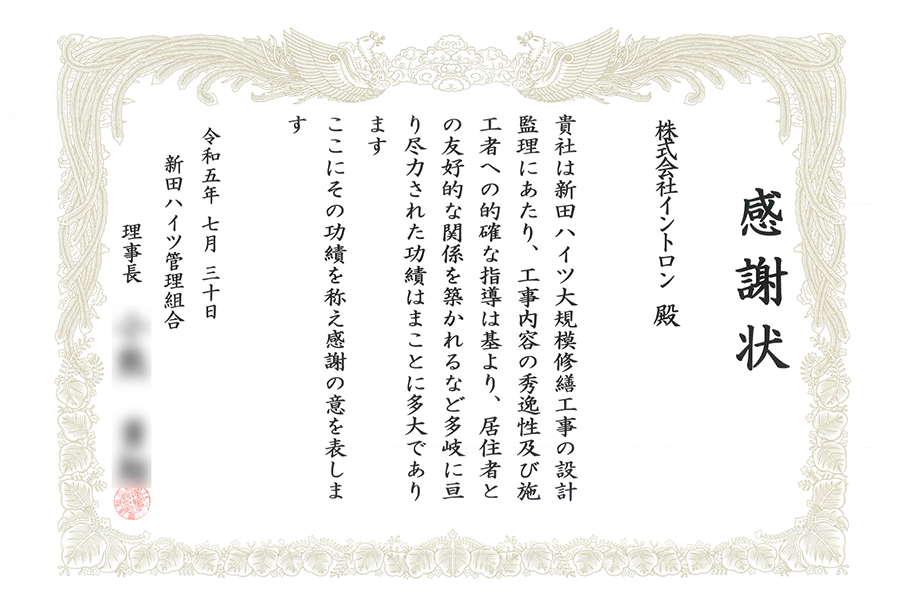 感謝状
株式会社イントロン 殿
貴社は新田ハイツ大規模修繕工事の設計
監理にあたり、工事内容の秀逸性及び施
工者への的確な指導は基より、居住者と
の友好的な関係を築かれるなど多岐に亘
り尽力された功績はまことに多大であり
ます
ここにその功績を称え感謝の意を表しま
す
令和五年 七月 三十日
新田ハイツ管理組合
理事長